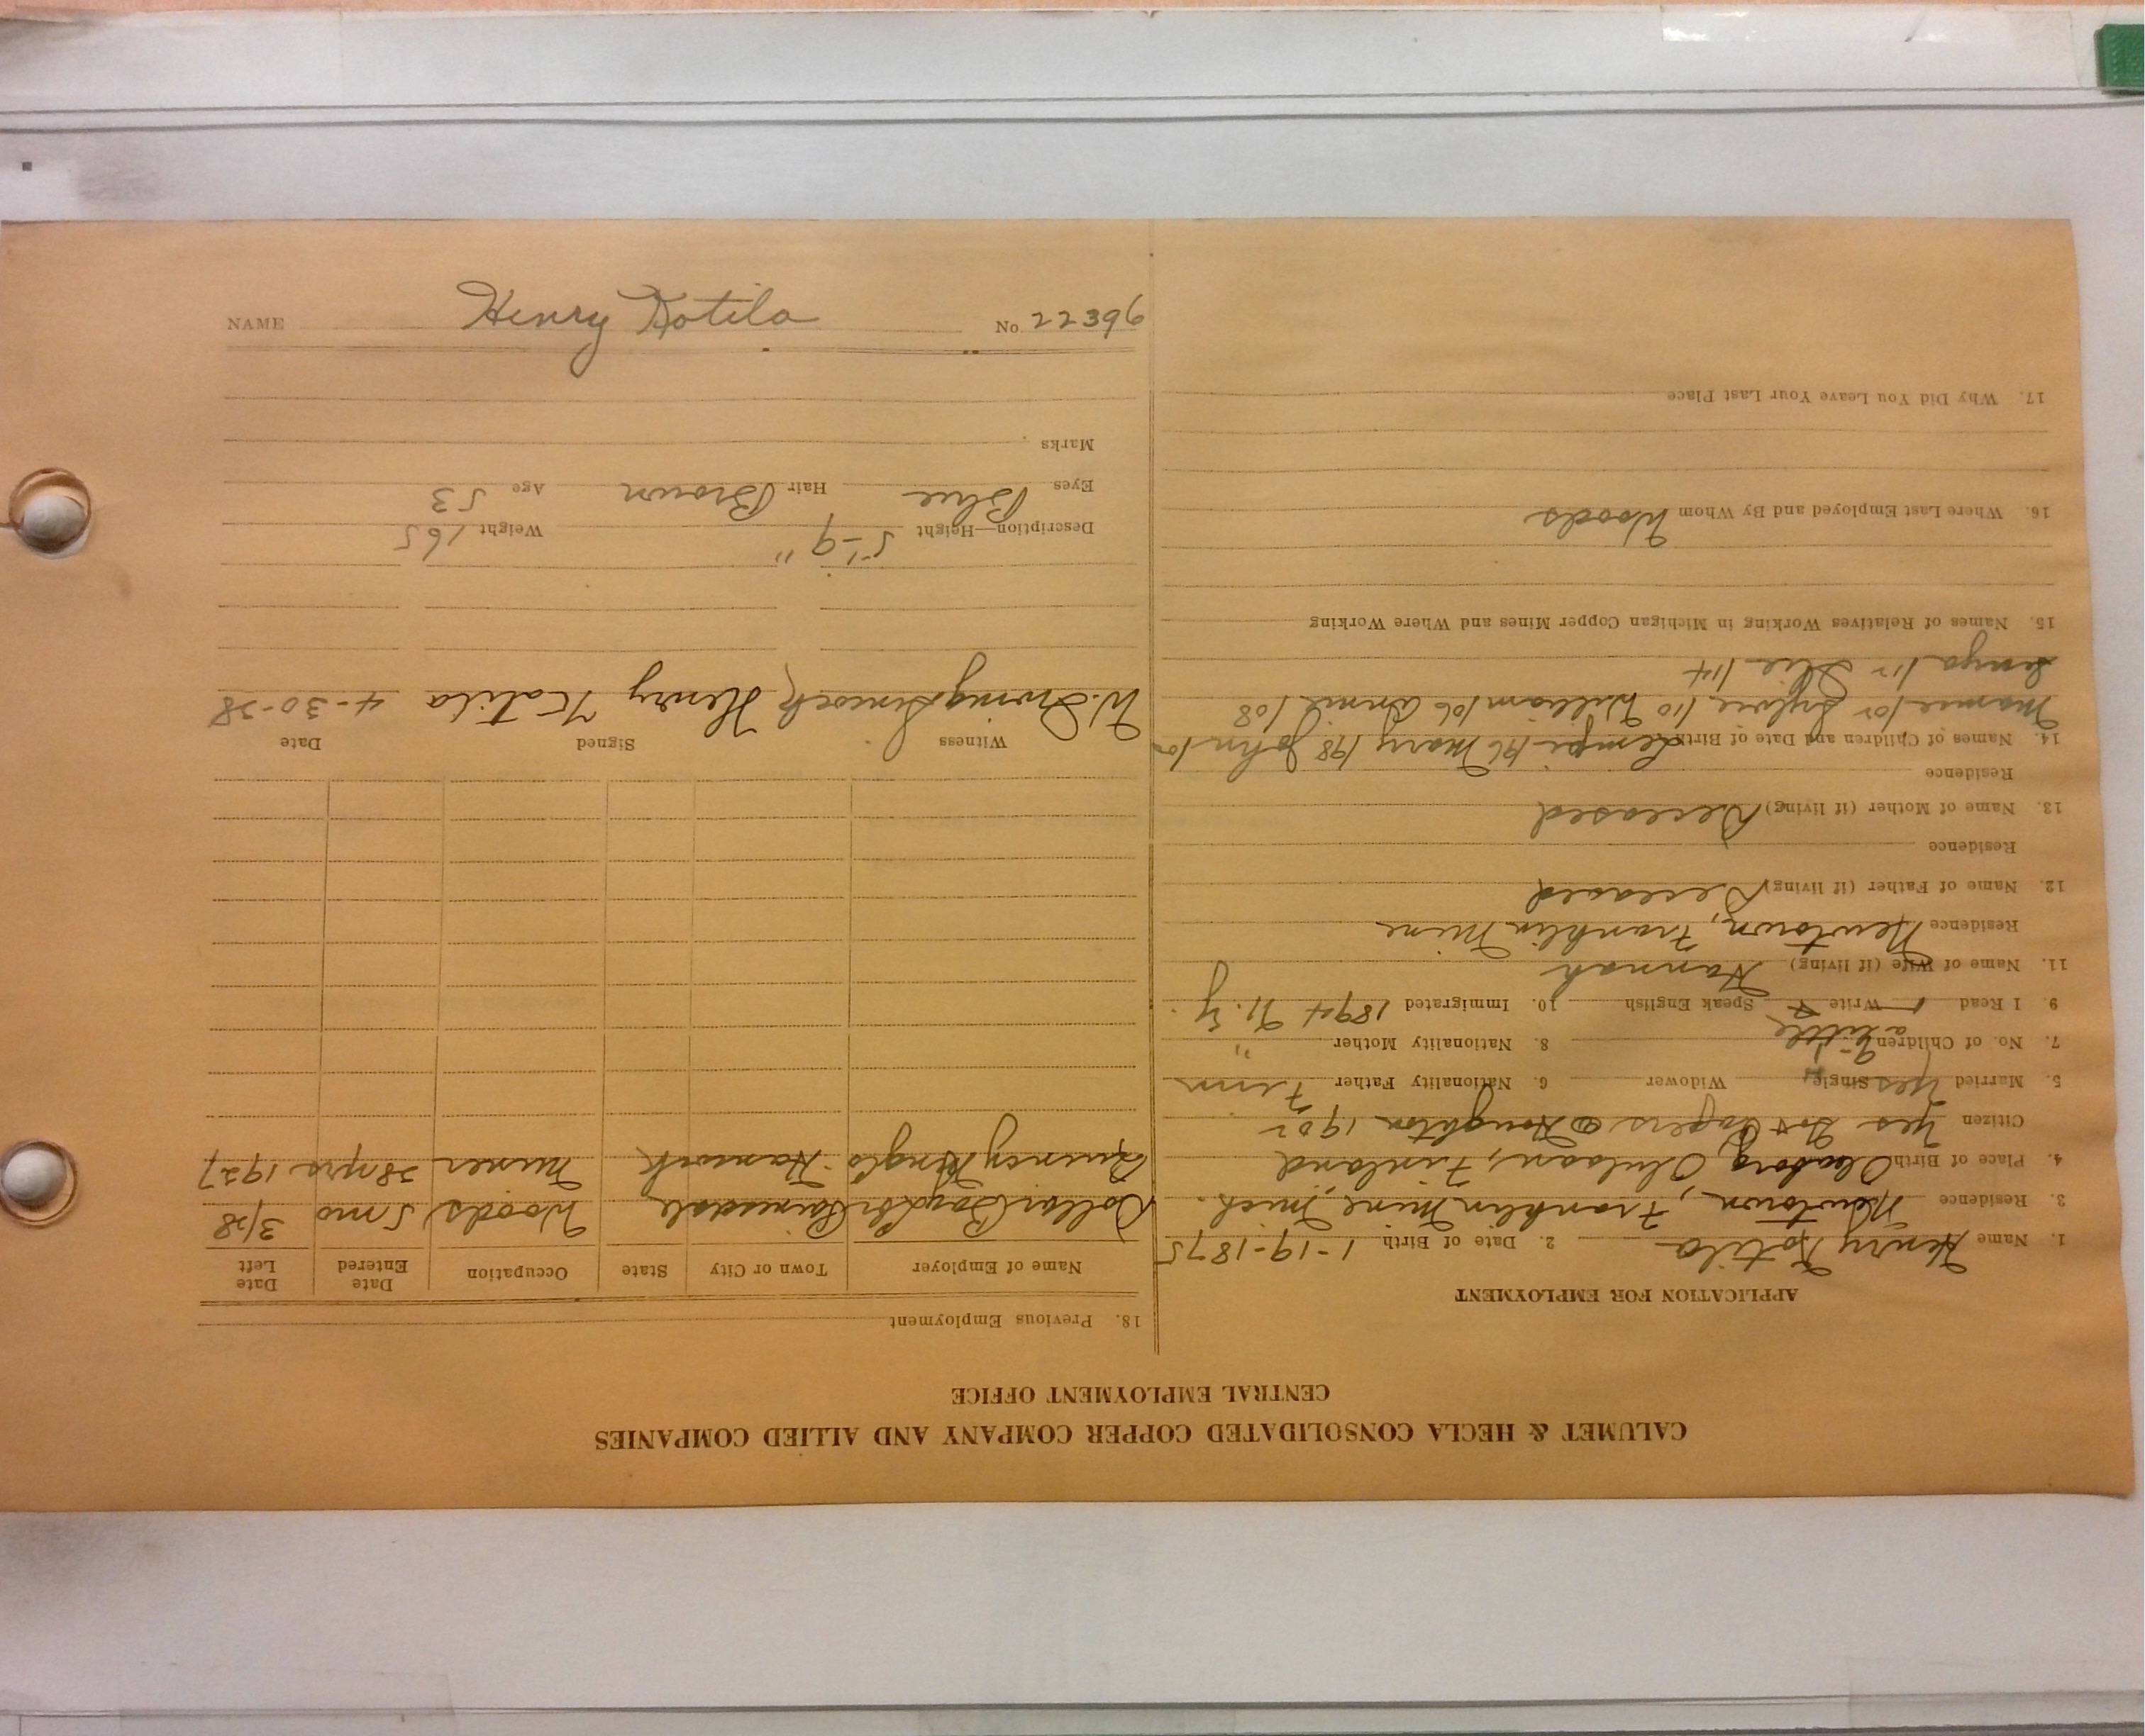 NAME Henry Kotila No. 22396
CALUMET & HECLA CONSOLIDATED COPPER COMPANY AND ALLIED COMPANIES
CENTRAL EMPLOYMENT OFFICE
APPLICATION FOR EMPLOYMENT
1. Name Henry Kotila 2. Date of Birth 1-19-1875
3. Residence Newtown, Franklin Mine, Mich.
4. Place of Birth Oleaborg, Finland
Citizen Yes Got Papers @ Houghton 1902
5. Married Yes Single Widower 6. Nationality Father Finn
7. No. of Children 8. Nationality Mother "
9. I Read Write Speak English a little 10. Immigrated 1894 N.Y.
11. Name of Wife (if living) Hannah
Residence Newtown, Franklin Mine
12. Name of Father (if living) Deceased
Residence
13. Name of Mother (if living) Deceased
Residence
14. Names of Children and Date of Birth Lempi '96 Mary '98 John '02
Mamie '05 Sylvie '10 William '06 Annie '08
Senya '12 '14
15. Names of Relatives Working in Michigan Copper Mines and Where Working
16. Where Last Employed and By Whom Woods
17. Why Did You Leave Your Last Place
18. Previous Employment
Name of Employer Town or City State Occupation Date Entered Date Left
Dollar Bay Painesdale Woods 5 mo 3/28
Quincy Hancock Miner 28 yrs 1927
Witness Signed Date
W. Irving Simcock Henry Katila 4-30-28
Description—Height 5'-9" Weight 165
Eyes Blue Hair Brown Age 53
Marks